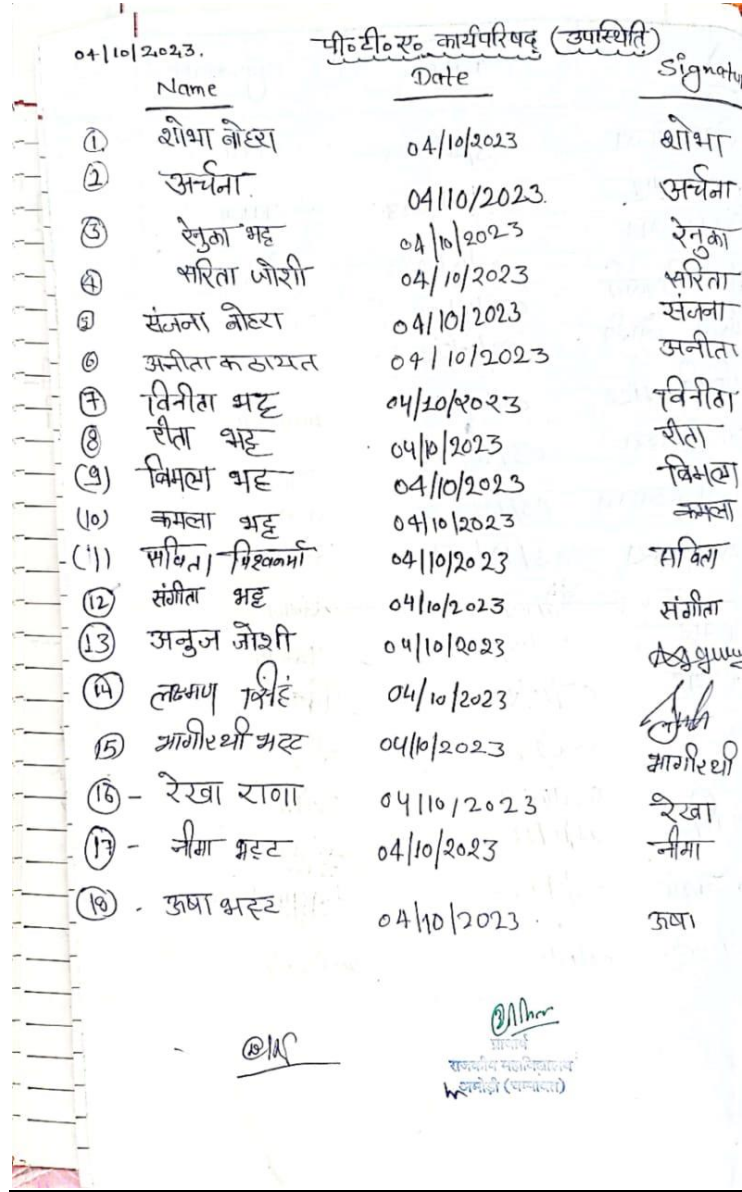 04/10/2023. पी०टी०ए० कार्यपरिषद् (उपस्थिति)
Name Date Signatu
① शोभा बोहरा 04/10/2023 शोभा
② अर्चना. 04/10/2023. अर्चना
③ रेनुका भट्ट 04/10/2023 रेनुका
④ सरिता जोशी 04/10/2023 सरिता
⑤ संजना बोहरा 04/10/2023 संजना
⑥ अनीता कठायत 04/10/2023 अनीता
⑦ विनीता भट्ट 04/10/2023 विनीता
⑧ रीता भट्ट 04/10/2023 रीता
(9) विमला भट्ट 04/10/2023 विमला
(10) कमला भट्ट 04/10/2023 कमला
(11) सविता विश्वकर्मा 04/10/2023 सविता
⑫ संगीता भट्ट 04/10/2023 संगीता
⑬ अनुज जोशी 04/10/2023
⑭ लक्ष्मण सिंह 04/10/2023
15) भागीरथी भट्ट 04/10/2023 भागीरथी
⑯ - रेखा राणा 04/10/2023 रेखा
⑰ - नीमा भट्ट 04/10/2023 नीमा
⑱ - ऊषा भट्ट 04/10/2023. ऊषा
प्राचार्य
राजकीय महाविद्यालय
अमोड़ी (चम्पावत)